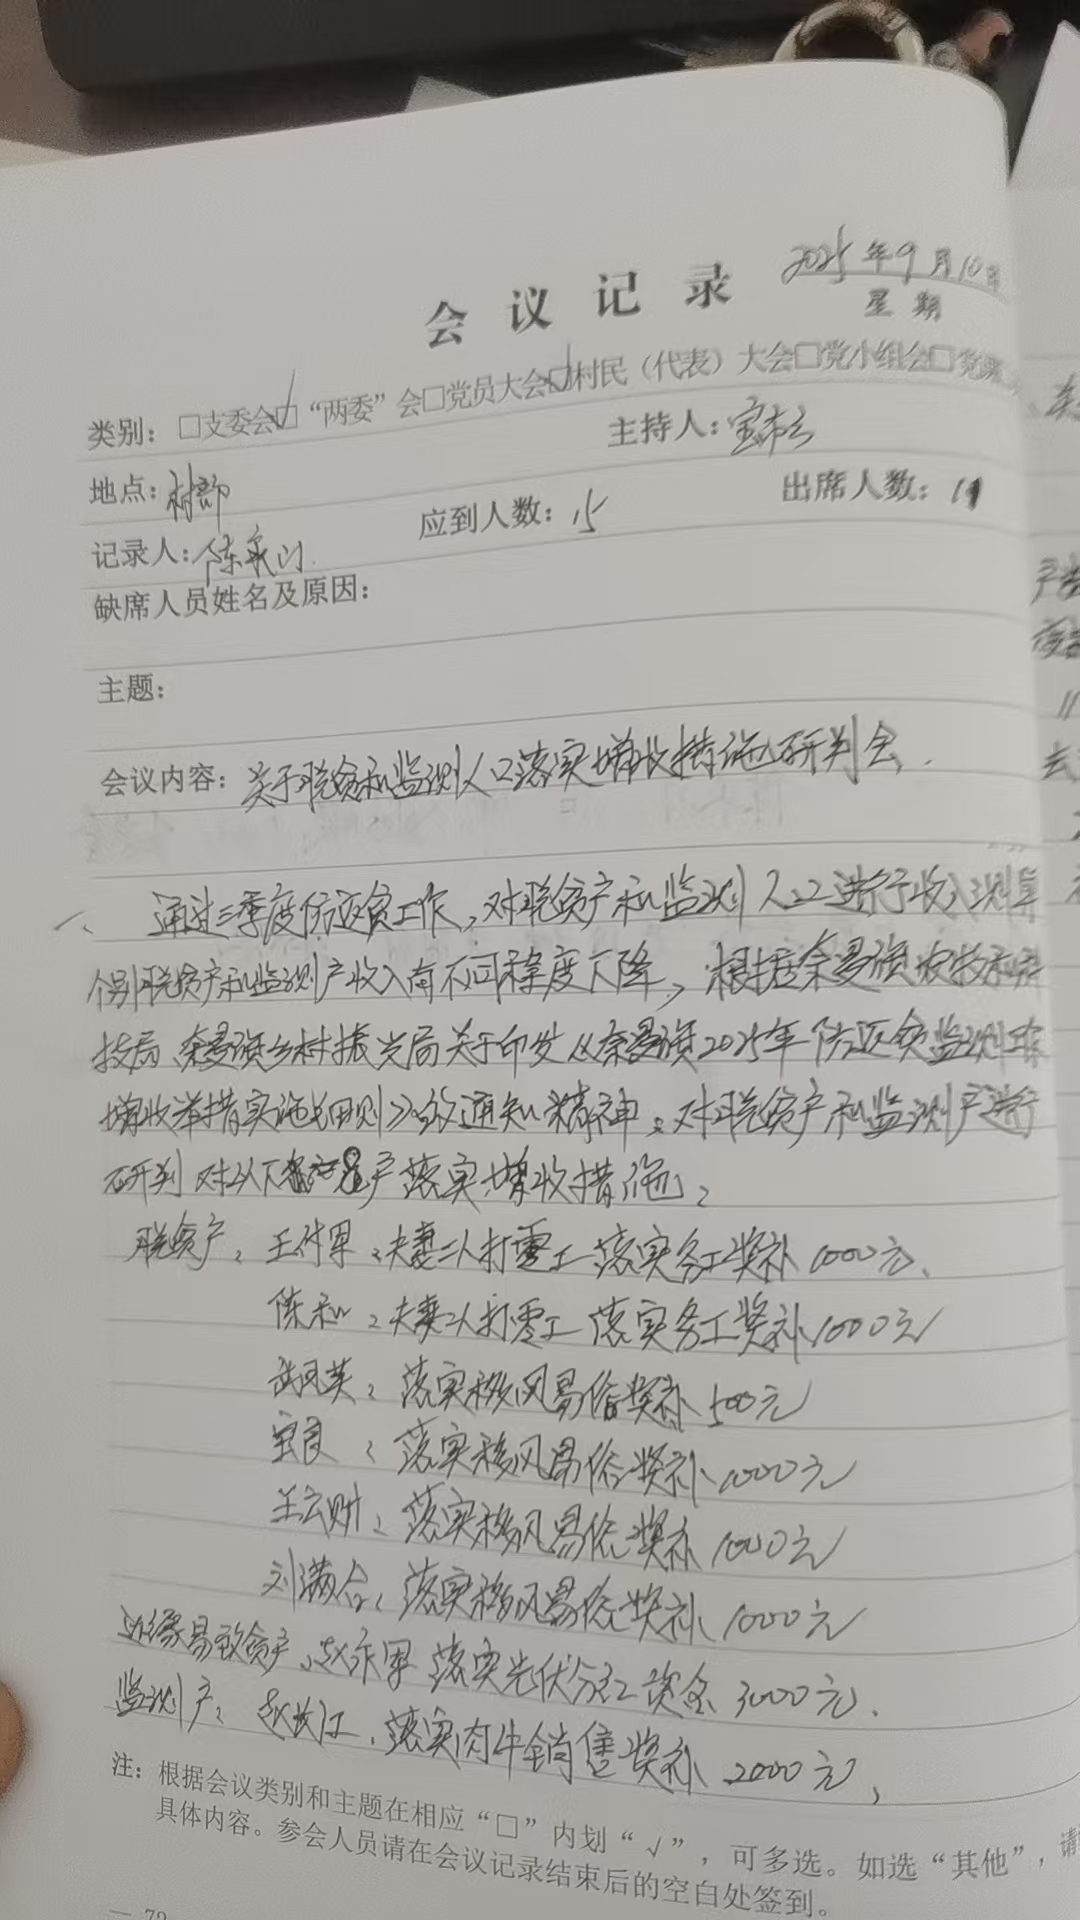 会议记录
2025年9月10日
星期
类别：□支委会☑“两委”会□党员大会☑村民（代表）大会□党小组会□党课
地点：村部 主持人：宝市云
记录人：陈 应到人数：15 出席人数：11
缺席人员姓名及原因：
主题：
会议内容：关于脱贫和监测人口落实增收措施研判会.
一、通过三季度防返贫工作，对脱贫户和监测人口进行收入测算
个别脱贫户和监测户收入有不同程度下降，根据奈曼旗农牧和科
技局 奈曼旗乡村振兴局关于印发《奈曼旗2025年防返贫监测
增收举措实施细则》的通知精神，对脱贫户和监测户进行
研判 对以下8户落实增收措施：
脱贫户：王付军：夫妻二人打零工落实务工奖补1000元、
陈和：夫妻二人打零工落实务工奖补1000元
武凤英：落实移风易俗奖补500元
宝良：落实移风易俗奖补1000元
王云财：落实移风易俗奖补1000元
刘满仓：落实移风易俗奖补1000元
边缘易致贫户：赵军落实光伏分红资金3000元.
监测户：赵江，落实肉牛销售奖补2000元，
注：根据会议类别和主题在相应“□”内划“√”，可多选。如选“其他”，请
具体内容。参会人员请在会议记录结束后的空白处签到。
— 72